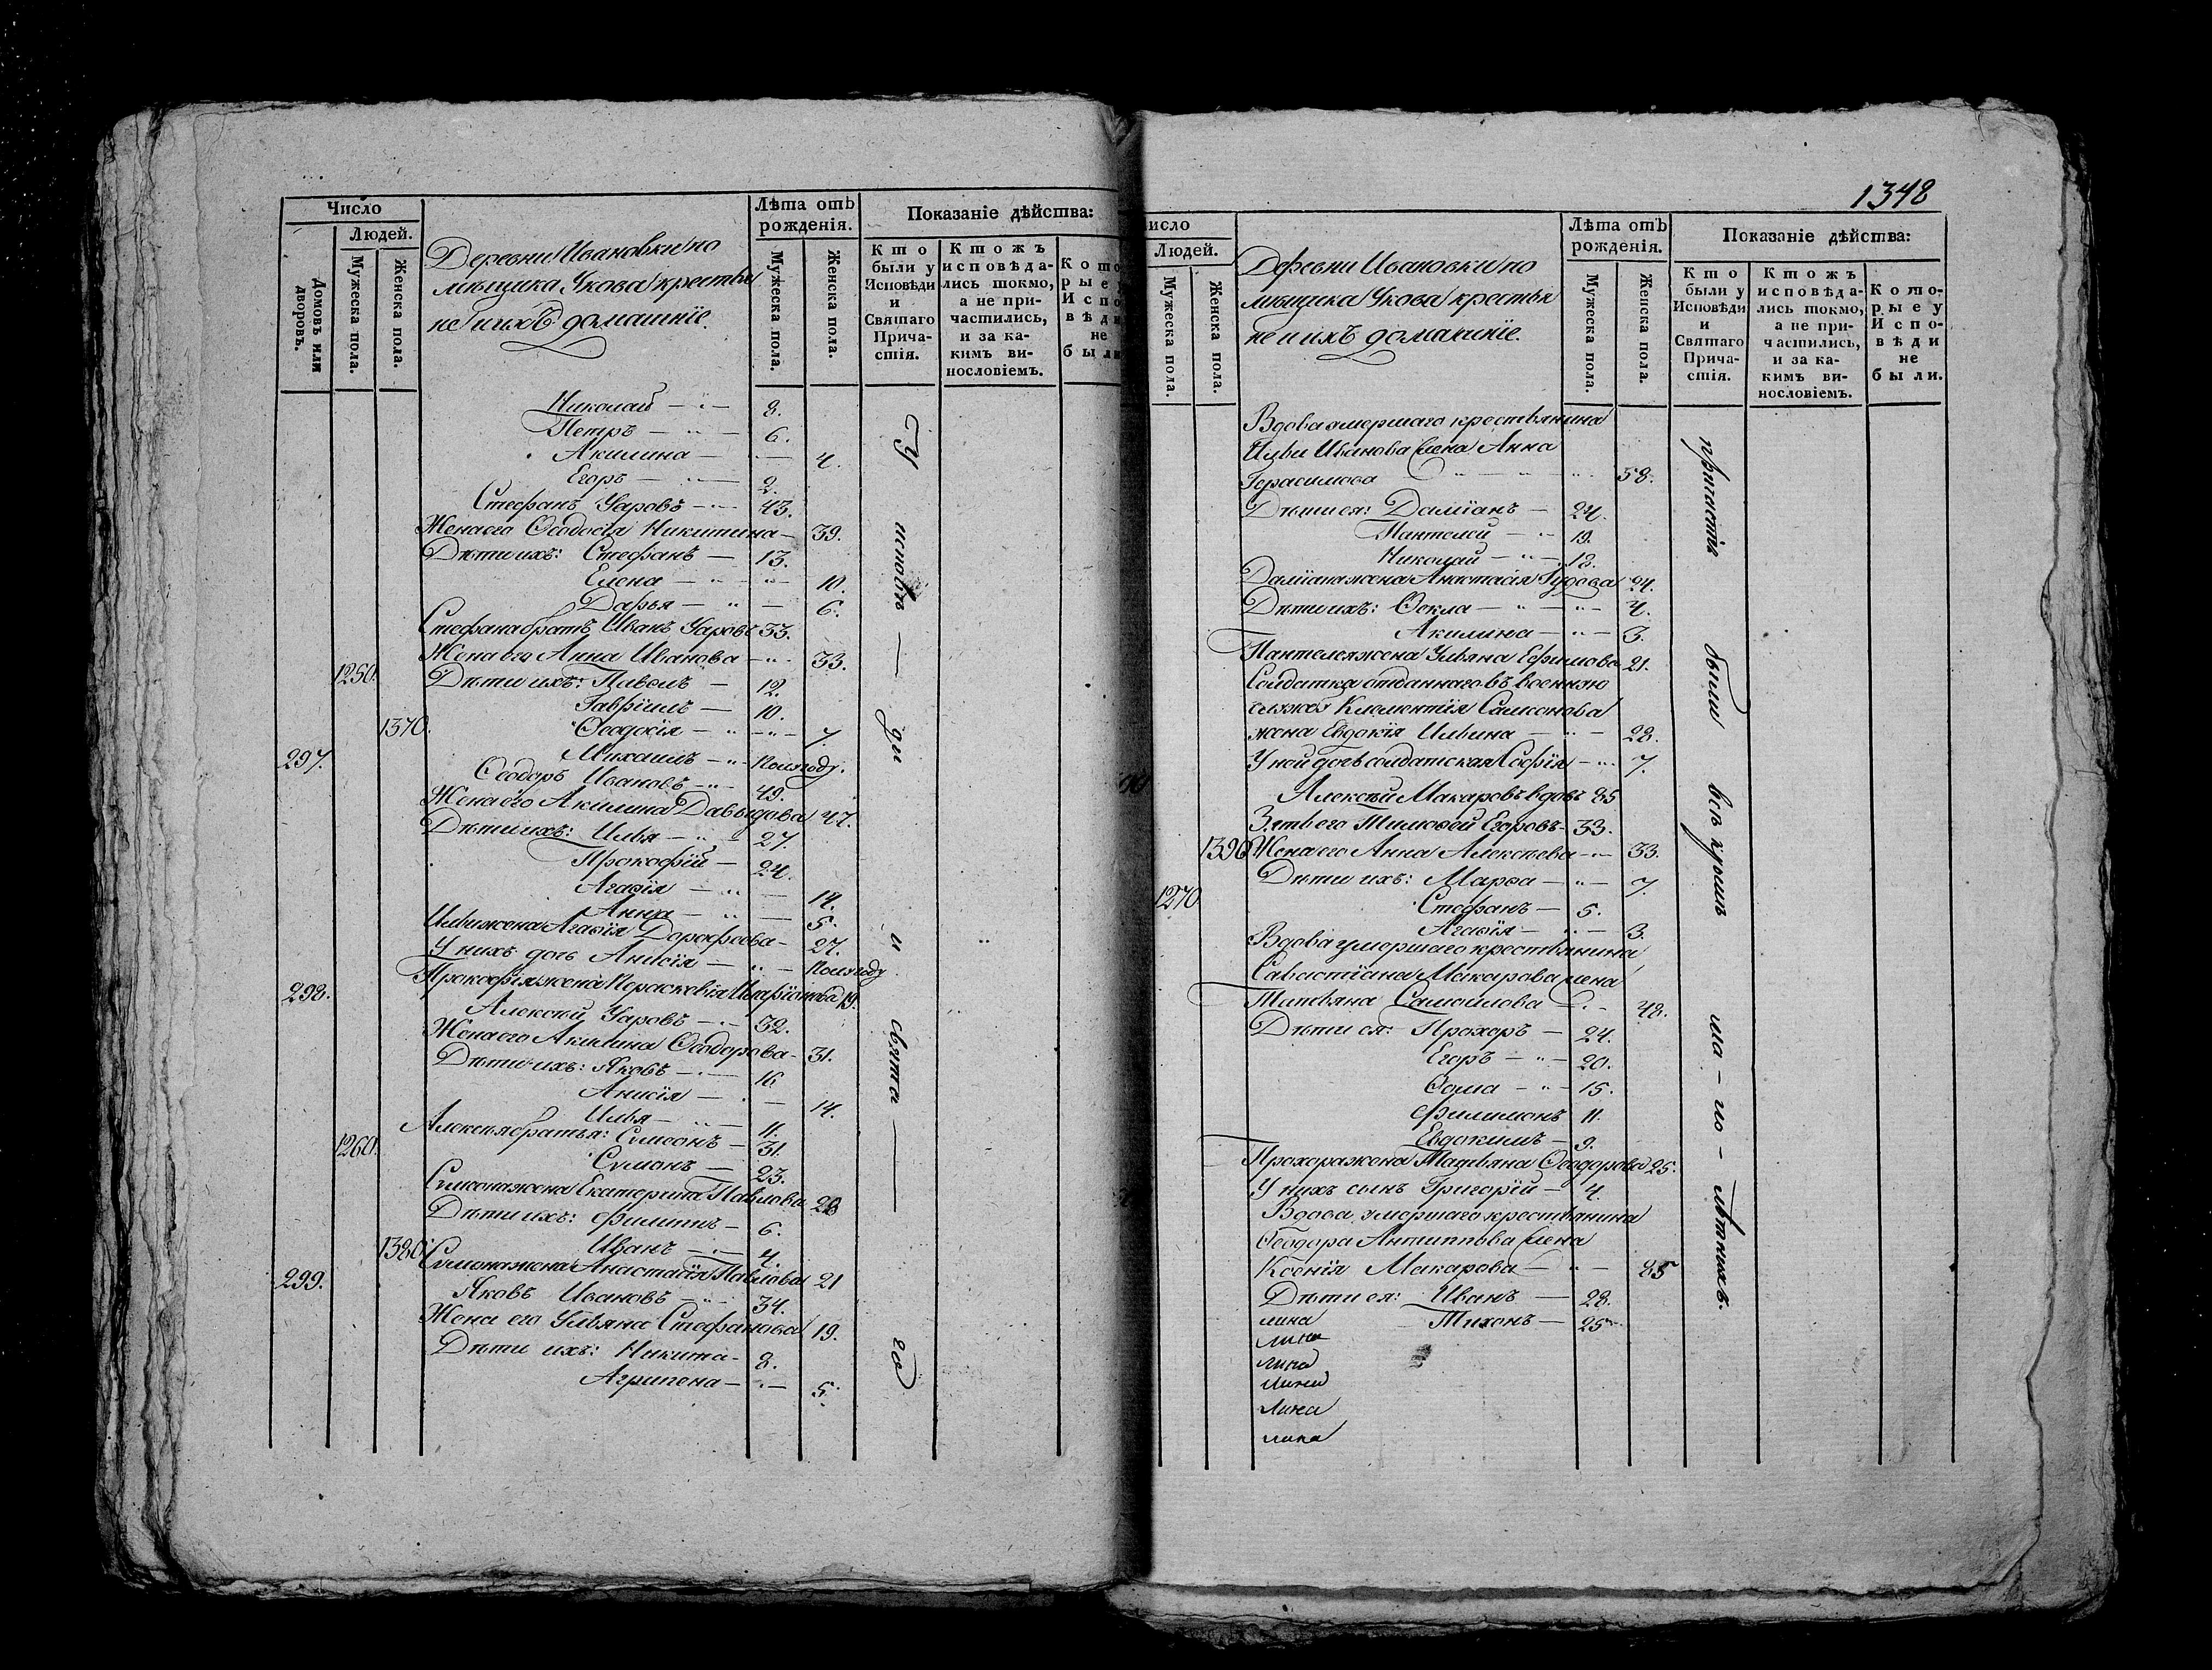 Число
Людей.
Домовъ или дворовъ.
Мужеска пола.
Женска пола.
Деревни Ивановки по
мѣщика Укова крестья
не и ихъ домашнiе.
Лѣта отъ
рожденiя.
Мужеска пола.
Женска пола.
Показанiе дѣйства:
Кто
были у
Исповѣди
и
Святаго
Прича-
стiя.
Ктожъ
исповѣда-
лись токмо,
а не при-
частились,
и за ка-
кимъ ви-
нословiемъ.
Николай — 8.
Петръ — 6.
Акилина — 4.
Егоръ — 2.
Стефанъ Уаровъ — 43.
Жена его Ѳеодосiя Никитина — 39.
Дѣти ихъ: Стефанъ — 13.
Елена — 10.
Дарья — 6.
Стефана братъ Иванъ Уаровъ 33.
Жена его Анна Иванова — 33.
1250. Дѣти ихъ: Павелъ — 12.
Гаврiилъ — 10.
1370. Ѳеодосiя — 7.
Михаилъ — полугоду.
297. Ѳеодоръ Ивановъ — 49.
Жена его Акилина Давыдова 47.
Дѣти ихъ: Илья — 27.
Прокофiй — 24.
Агафiя — 14.
Анна — 5.
Ильи жена Агафiя Дорофеева — 27.
У нихъ дочь Анисiя — полугоду
Прокофiя жена Параскевiя Иларiонова 19.
298. Алексѣй Уаровъ — 32.
Жена его Акилина Ѳеодорова — 31.
Дѣти ихъ: Яковъ — 16
Анисiя — 14.
Илья — 11.
Алексѣя братья: Сѵмеонъ — 31.
1260. Сѵмонъ — 23.
Сѵмеона жена Екатерина Павлова 28
Дѣти ихъ: Филиппъ — 6.
Иванъ — 4.
1380. Сѵмона жена Анастасiя Павлова 21
299. Яковъ Ивановъ — 34.
Жена его Ульяна Стефанова 19.
Дѣти ихъ: Никита — 8.
Агрипена — 5.
У исповѣ — ди и свята — го
1348
исло
Людей.
Мужеска пола.
Женска пола.
Деревни Ивановки по
мѣщика Укова крестья
не и ихъ домашнiе.
Лѣта отъ
рожденiя.
Мужеска пола.
Женска пола.
Показанiе дѣйства:
Кто
были у
Исповѣди
и
Святаго
Прича-
стiя.
Ктожъ
исповѣда-
лись токмо,
а не при-
частились,
и за ка-
кимъ ви-
нословiемъ.
Кото-
рые у
Испо-
вѣди
не
были.
Вдова умершаго крестьянина
Ильи Иванова жена Анна
Герасимова 58.
Дѣти ея: Дамiанъ — 24.
Пантелей — 19.
Николай — 12.
Дамiана жена Анастасiя Гудова 24.
Дѣти ихъ: Ѳекла — 4.
Акилина — 3.
Пантелея жена Ульяна Ефимова 21.
Солдатка отданнаго въ военную
службу Климентiя Самсонова
жена Евдокiя Ильина — 28.
У ней дочь солдатская Софiя — 7.
Алексѣй Макаровъ вдовъ 85
Зять его Тимофей Егоровъ — 33.
1390 Жена его Анна Алексѣева — 33.
Дѣти ихъ: Марѳа — 7.
1270 Стефанъ — 5.
Агафiя — 3.
Вдова умершаго крестьянина
Савастiана Макарова жена
Татьяна Самойлова — 48.
Дѣти ея: Прохоръ — 24.
Егоръ — 20.
Ѳома — 15.
Филимонъ 11.
Евдокимъ — 9.
Прохора жена Татьяна Ѳеодорова 25.
У нихъ сынъ Григорiй — 4.
Вдова умершаго крестьянина
Ѳеодора Антиппова жена
Ксенiя Макарова — 85
Дѣти ея: Иванъ — 28.
Тихонъ — 25
причастiя были всѣ кромѣ ма - ло - лѣтнихъ.